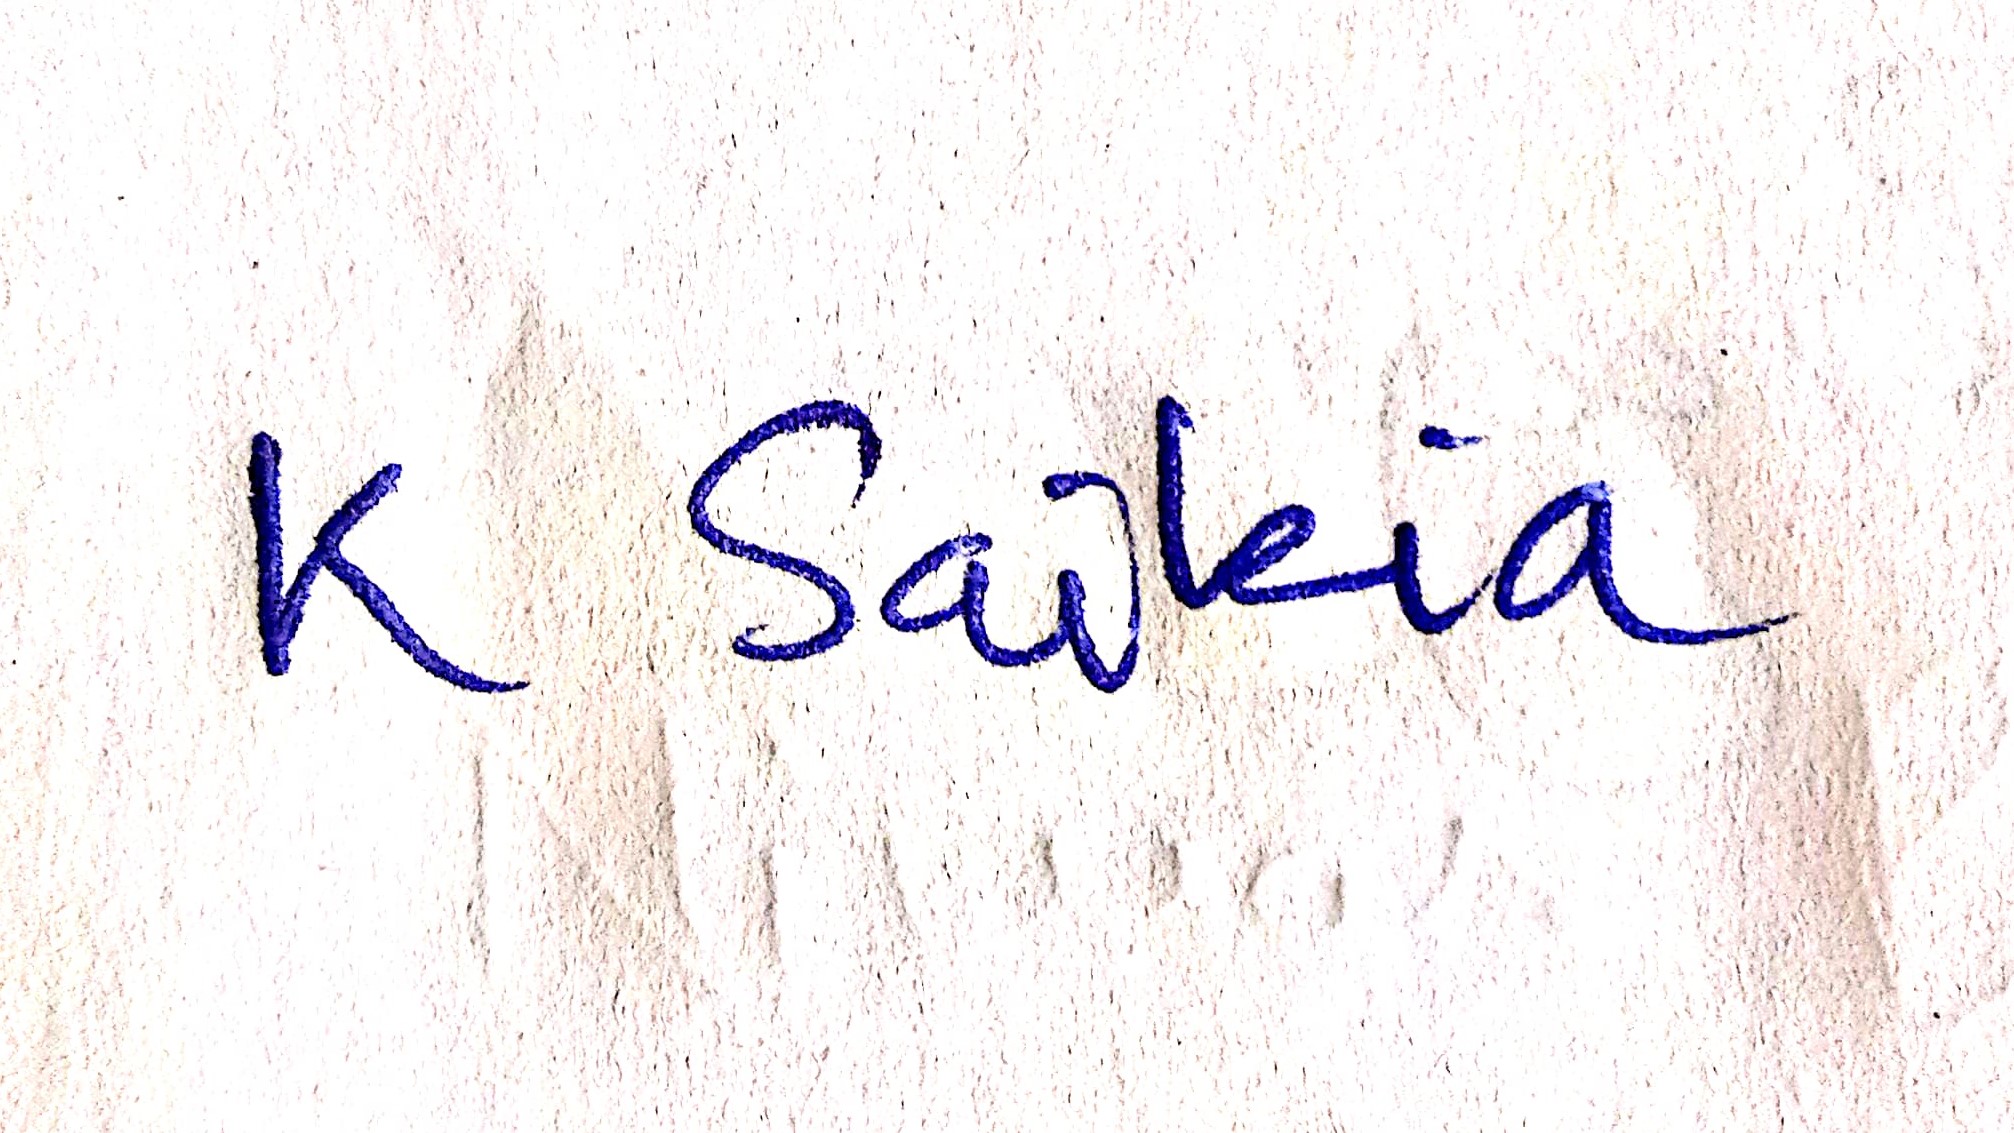 K Saikia